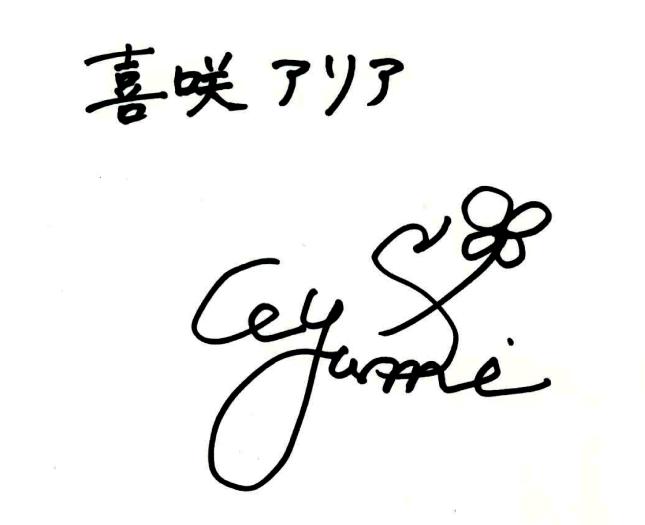 喜咲 アリア
Ayumi